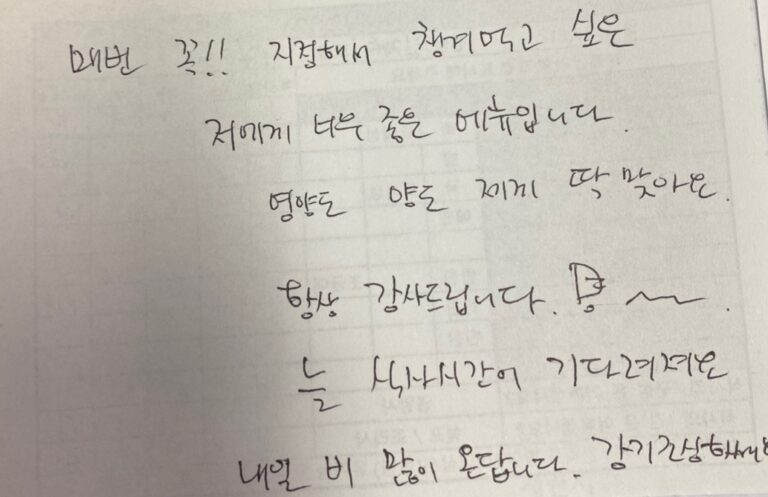 매번 꼭!! 지정해서 챙겨먹고 싶은
저에게 너무 좋은 메뉴입니다.
영양도 양도 제게 딱 맞아요.
항상 감사드립니다.
늘 식사시간이 기다려져요
내일 비 많이 온답니다. 감기조심하세요